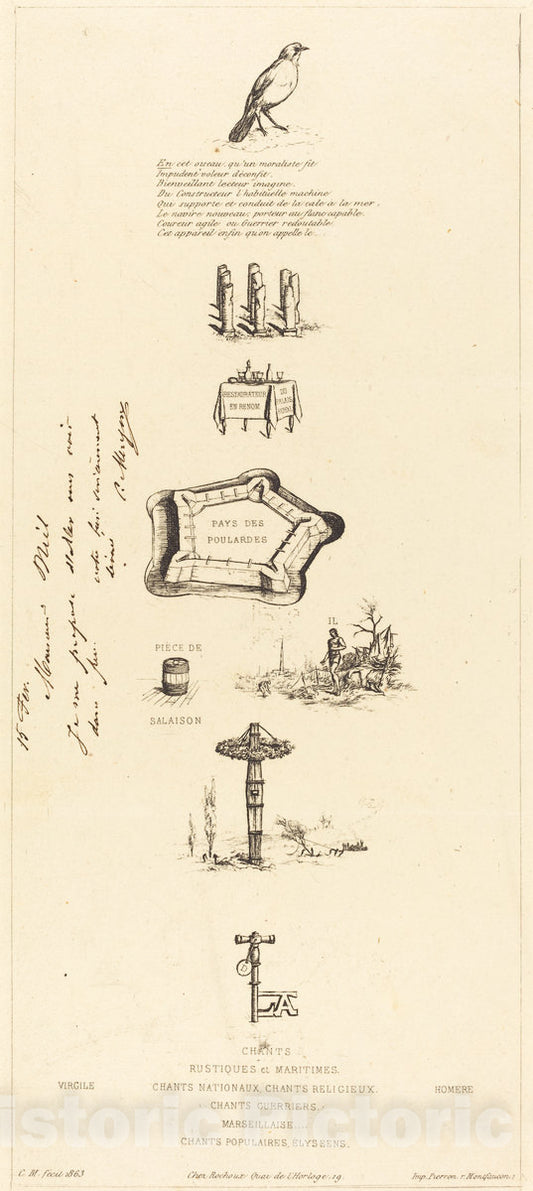 En cet oiseau, qu'un moraliste fit
Impudent voleur déconfit,
Bienveillant lecteur imagine,
Du Constructeur l'habituelle machine
Qui supporte et conduit de la cale à la mer,
Le navire nouveau; porteur au flanc capable,
Coureur agile ou Guerrier redoutable.
Cet appareil enfin qu'on appelle le...
RESTAURATEUR
EN RENOM
DU
PALAIS
ROYAL
PAYS DES
POULARDES
IL
PIÈCE DE
SALAISON
15 Fev.
Monsieur Niel
Je me propose d'aller vous voir
dans
votre
C. Meryon
LA
CHANTS
RUSTIQUES et MARITIMES.
VIRGILE CHANTS NATIONAUX, CHANTS RELIGIEUX. HOMERE
CHANTS GUERRIERS.
MARSEILLAISE....
CHANTS POPULAIRES, ELYSEENS.
C. M. fecit 1863 Chez Rochoux Quai de l'Horloge. 19. Imp. Pierron. r. Montfaucon. 1
Historic Pictoric